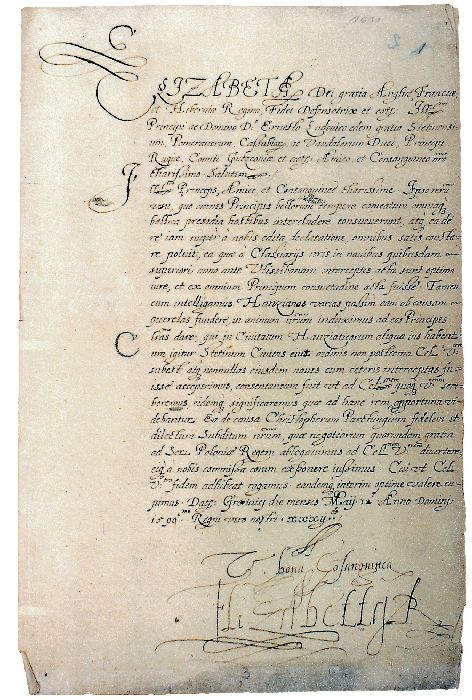 ELIZABETA Dei gratia Angliæ Franciæ
et Hiberniæ Regina, Fidei Defensatrix et cet.
Principi ac Domino Dº Ernesto Ludovico eadem gratia Stetinensium,
Pomeranorum, Cassubiae, ac Vandalorum Duci, Principi
Rugiæ, Comiti Gutzcoviæ et cet. Amico et Consanguineo nrō
charissimo Salutem
Princeps, Amice, et Consanguinee charissime. Ipse
quæ omnes Principes bellorum tempore commeatum
bellica præsidia hostibus intercludere consueverint, atq ea de
re iam nuper à nobis edita declaratione, omnibus satis constare
potuit, ea quæ à Classiarijs nris in navibus quibusdam
superiori anno ante Ulissibonam interceptis acta sunt optimo
iure, et ex omnium Principum consuetudine acta fuisse. Tamen
cum intelligamus Hanzianos varias passim eam ob causam
querelas fundere, in animum indiximus ad eos Principes
lras dare, qui in Civitatum Hanziaticarum aliqua ius habent
Cum igitur Stetinum Civitas eius ordinis non postrema Cel.
subest atq nonnullas eiusdem naves cum ceteris interceptas fuisse
acceperimus, consentaneum fuit ut ad Cel. quoq scriberemus,
eidemq significaremus quæ ad hanc rem opportuna videbantur.
Ea de causa Christopherum Parchinsium fidelem et
dilectum Subditum nrum, quæ negotiorum quorundam gratia
ad Ser. Poloniæ Regem ablegavimus ad Cel. divertere,
eiq à nobis commissa coram exponere iussimus. Cui ut Cel.
fidem adhibeat rogamus. eandemq interim optime valere cupimus.
Dat. Grenvici die mensis Maij Anno Domini
1590 Regni vero nostri xxxij
bona Cosanguinea
Elizabetta R